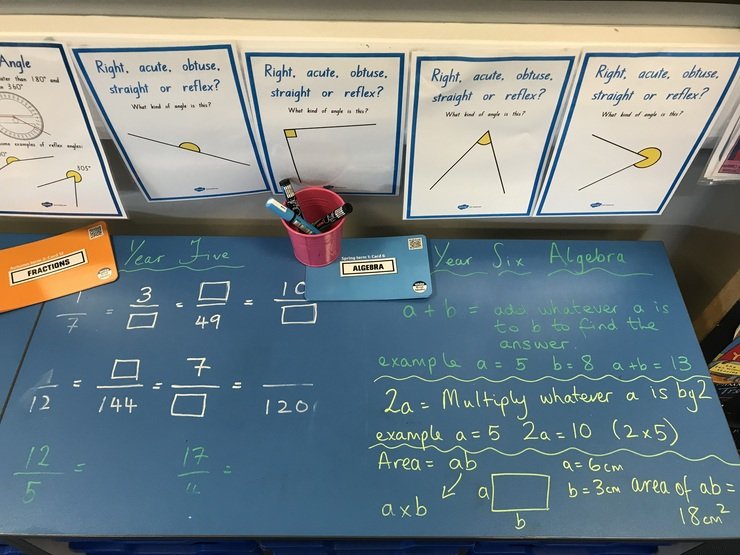 Angle
180° and
360°
some examples of reflex angles:
305°
Right, acute, obtuse,
straight or reflex?
What kind of angle is this?
Right, acute, obtuse,
straight or reflex?
What kind of angle is this?
Right, acute, obtuse,
straight or reflex?
What kind of angle is this?
Right, acute, obtuse,
straight or reflex?
What kind of angle is this?
FRACTIONS
Spring term 1: Card 6
ALGEBRA
Year Five
1/7 = 3/□ = □/49 = 10/□
/12 = □/144 = 7/□ = /120
12/5 =
17/ =
Year Six Algebra
a + b = add whatever a is
to b to find the
answer.
example a = 5 b = 8 a+b = 13
2a = Multiply whatever a is by 2
example a = 5 2a = 10 (2x5)
Area = ab
axb
a
b
a = 6cm
b = 3cm area of ab =
18cm²